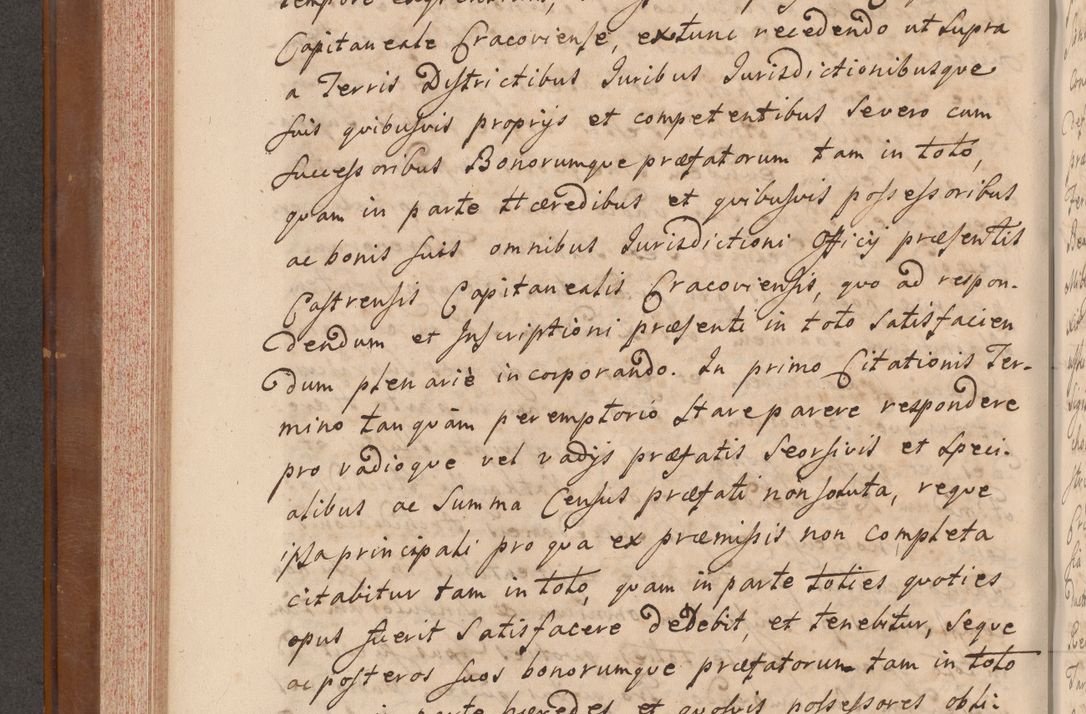 Capitaneale Cracoviense, extunc recedendo ut supra
a Terris Districtibus Iuribus Iurisdictionibusque
suis quibusvis proprijs et competentibus Severo cum
successoribus Bonorumque præfatorum tam in toto,
quam in parte Hæredibus et quibusvis possessoribus
ac bonis suis omnibus Iurisdictioni Officij præsentis
Castrensis Capitanealis Cracoviensis, quo ad respon-
dendum et Inscriptioni præsenti in toto satisfacien
dum plenariè incorporando. In primo Citationis Ter-
mino tanquàm peremptorio stare parere respondere
pro vadioque vel vadijs præfatis seorsivis et speci-
alibus ac Summa Census præfati non soluta, reque
ipsa principali pro qua ex præmissis non completa
citabitur tam in toto, quam in parte toties quoties
opus fuerit satisfacere dedebit, et tenebitur, seque
ac posteros suos bonorumque præfatorum tam in toto
parte hæredes et quosvis possessores obli-